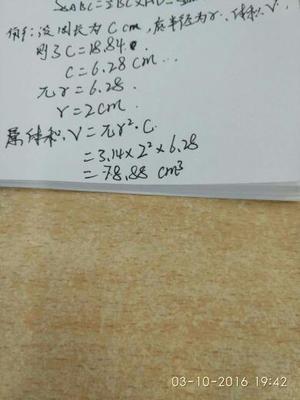 S△ABC=
设周长为 C cm,底半径为r、体积V,
则3C=18.84.
C=6.28cm
πr=6.28.
r=2cm.
体积.V=πr²·C.
=3.14×2²×6.28
=78.88 cm³
03-10-2016 19:42